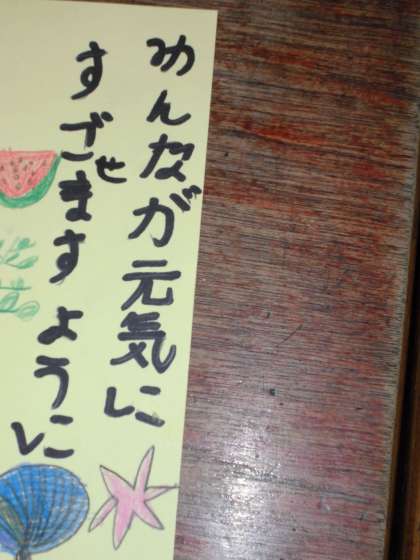 みんなが元気に
すごせますように